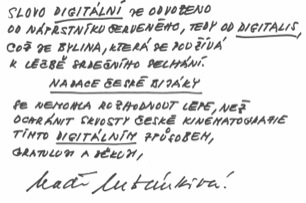 SLOVO DIGITÁLNÍ JE ODVOZENO
OD NÁPRSTNÍKU ČERVENÉHO, TEDY OD DIGITALIS,
COŽ JE BYLINA, KTERÁ SE POUŽÍVÁ
K LÉČBĚ SRDEČNÍHO SELHÁNÍ.
NADACE ČESKÉ BIJÁKY
SE NEMOHLA ROZHODNOUT LÉPE, NEŽ
OCHRÁNIT SKVOSTY ČESKÉ KINEMATOGRAFIE
TÍMTO DIGITÁLNÍM ZPŮSOBEM,
GRATULUJI A DĚKUJI,